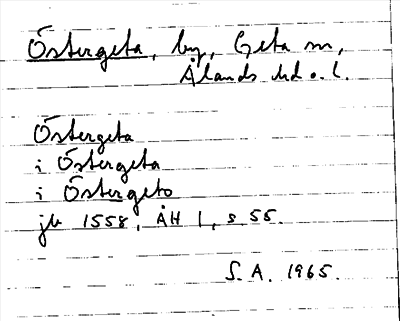 Östergeta, by, Geta sn,
Ålands hd o. l.
Östergeta
i Östergeta
i Östergeto
jb 1558, ÅH 1, s 55.
S. A. 1965.